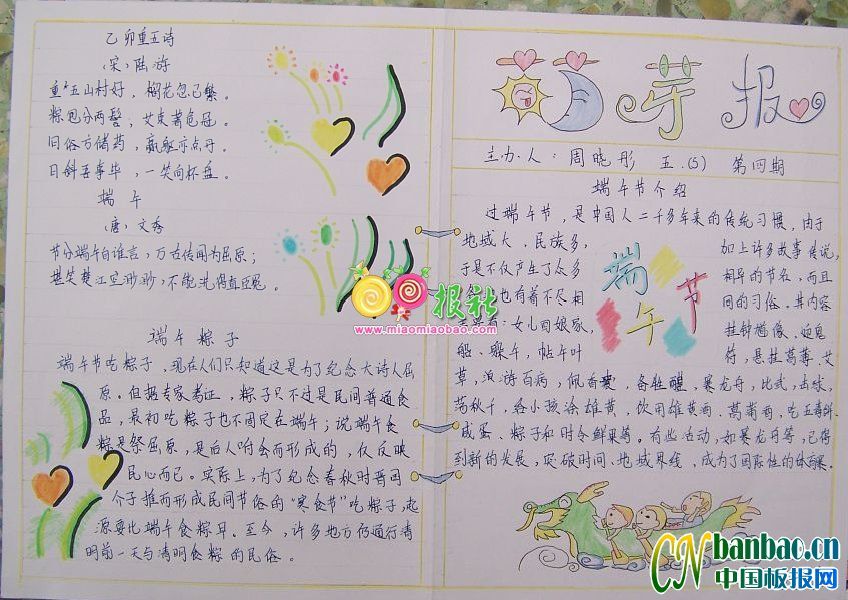 乙卯重五诗
（宋）陆游
重五山村好，榴花忽已繁。
粽包分两髻，艾束著危冠。
旧俗方储药，羸躯亦点丹。
日斜吾事毕，一笑向杯盘。
端午
（唐）文秀
节分端午自谁言，万古传闻为屈原；
堪笑楚江空渺渺，不能洗得直臣冤。
端午粽子
端午节吃粽子，现在人们只知道这是为了纪念大诗人屈
原。但据专家考证，粽子只不过是民间普通食
品，最初吃粽子也不固定在端午；说端午食
粽是祭屈原，是后人附会而形成的，仅反映
民心而已。实际上，为了纪念春秋时晋国
介子推而形成民间节俗的“寒食节”吃粽子，起
源要比端午食粽早。至今，许多地方仍通行清
明前一天与清明食粽的民俗。
芽报
主办人：周晓彤 五.(5) 第四期
端午节介绍
过端午节，是中国人二千多年来的传统习惯，由于
地域大，民族多，加上许多故事传说，
于是不仅产生了众多相异的节名，而且
也有着不尽相同的习俗。其内容
女儿回娘家，挂钟馗像，迎鬼
船、躲午，帖午叶符，悬挂菖蒲、艾
草，游百病，佩香囊，备牲醴，赛龙舟，比武，击球，
荡秋千，给小孩涂雄黄，饮用雄黄酒、菖蒲酒，吃五毒饼、
咸蛋、粽子和时令鲜果等。有些活动，如赛龙舟等，已得
到新的发展，突破时间、地域界线，成为了国际性的体育赛
端午节
报社
www.miaomiaobao.com
CNbanbao.cn
中国板报网